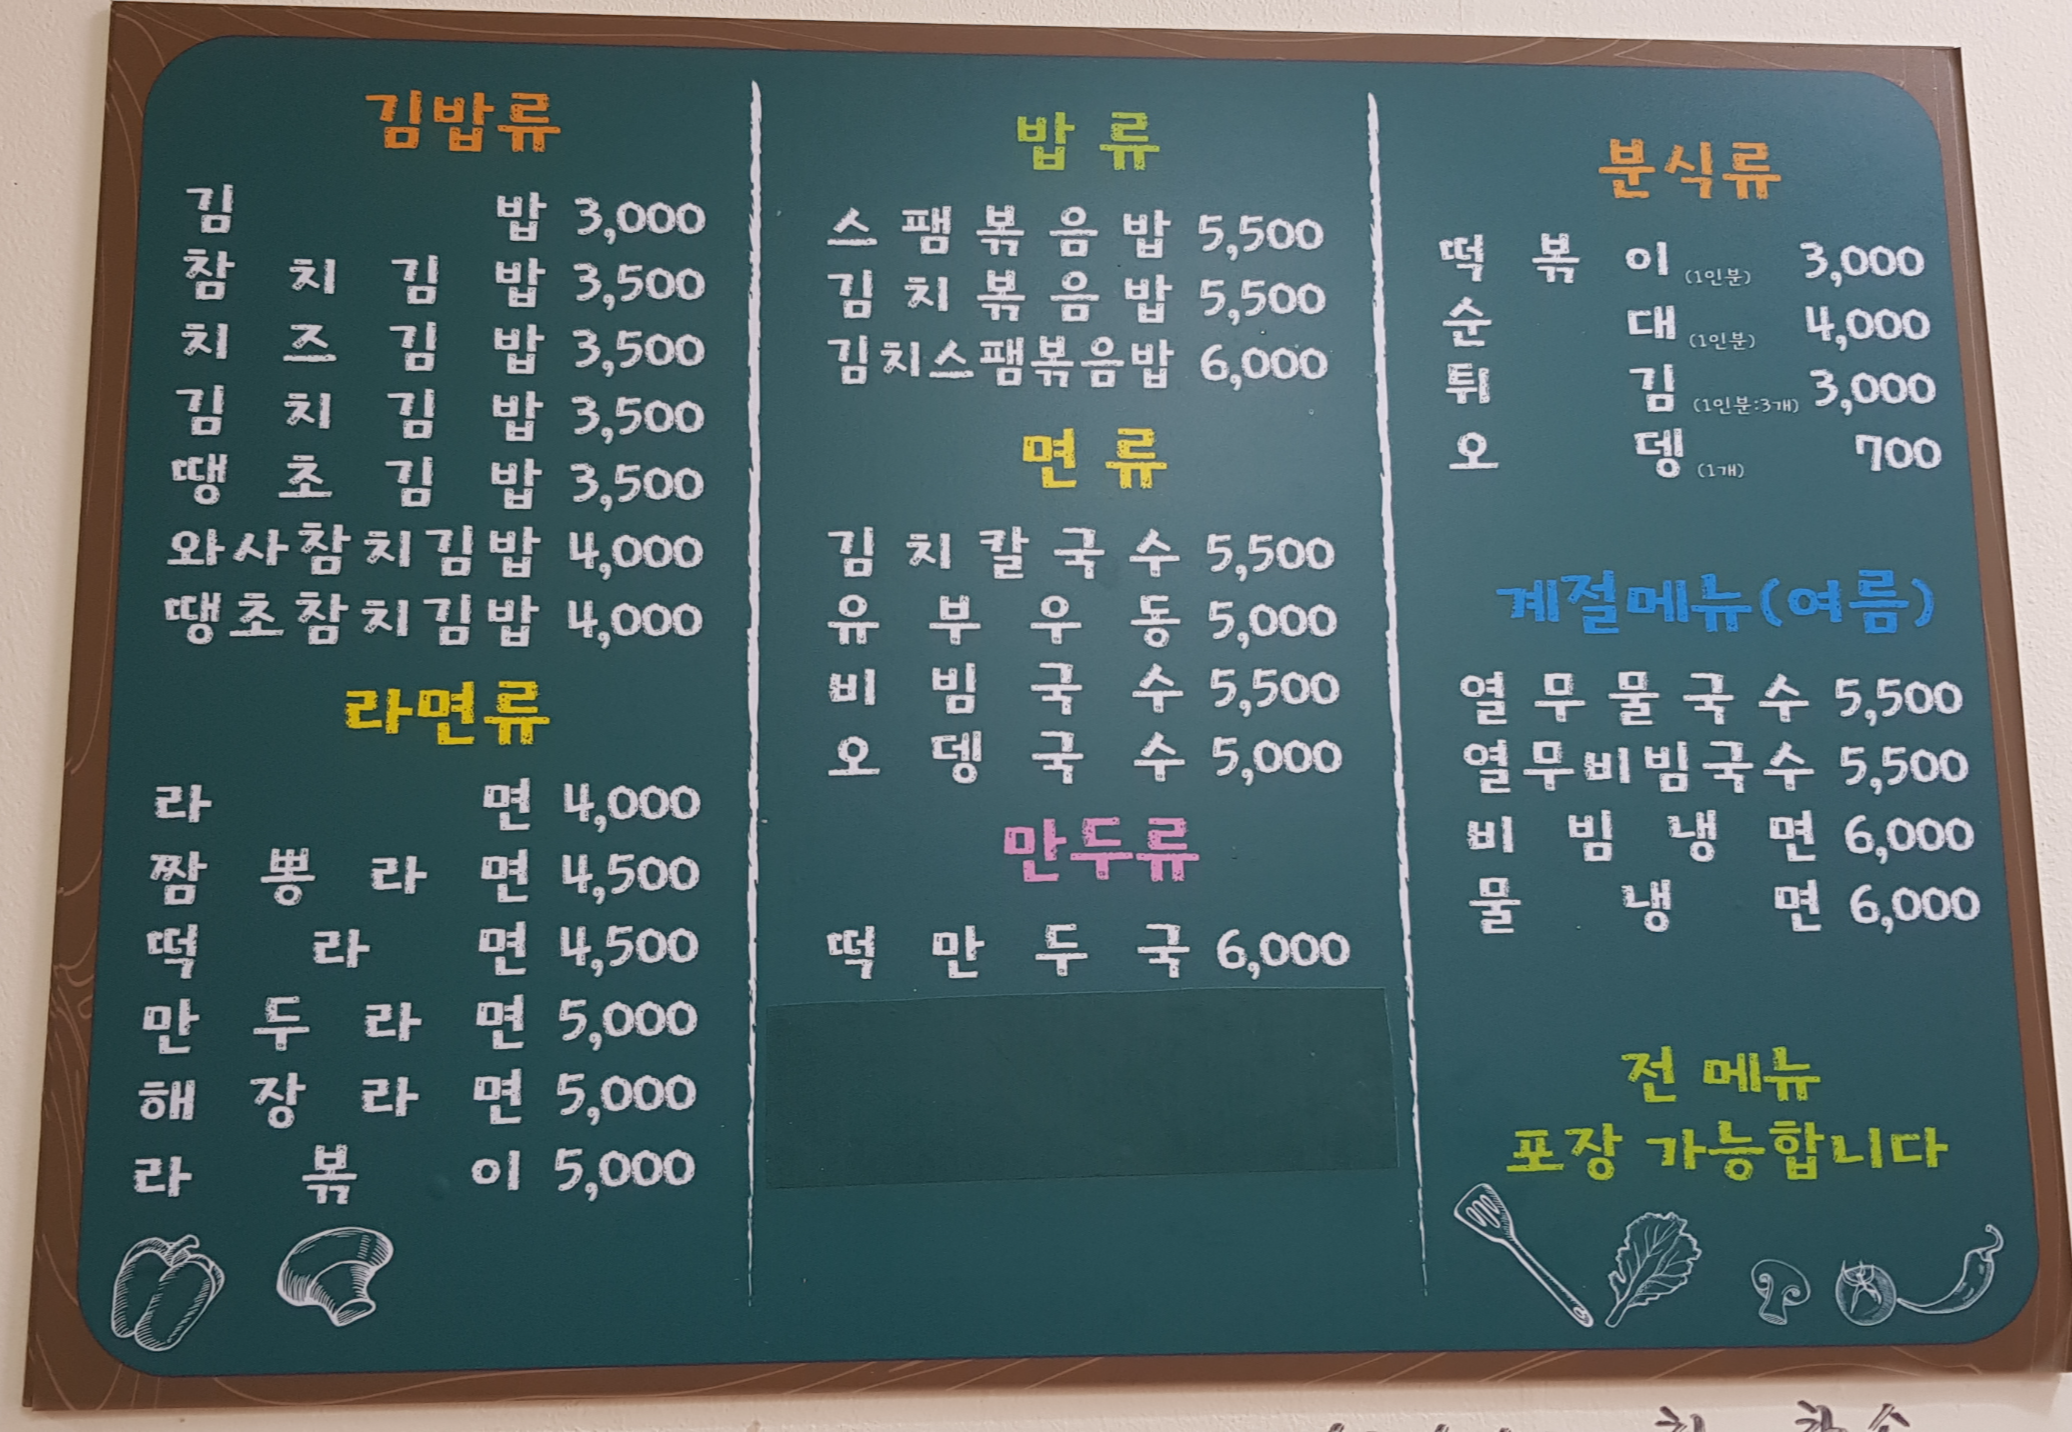 김밥류
김밥 3,000
참치김밥 3,500
치즈김밥 3,500
김치김밥 3,500
땡초김밥 3,500
와사참치김밥 4,000
땡초참치김밥 4,000
라면류
라면 4,000
짬뽕라면 4,500
떡라면 4,500
만두라면 5,000
해장라면 5,000
라볶이 5,000
밥류
스팸볶음밥 5,500
김치볶음밥 5,500
김치스팸볶음밥 6,000
면류
김치칼국수 5,500
유부우동 5,000
비빔국수 5,500
오뎅국수 5,000
만두류
떡만두국 6,000
분식류
떡볶이 (1인분) 3,000
순대 (1인분) 4,000
튀김 (1인분:3개) 3,000
오뎅 (1개) 700
계절메뉴(여름)
열무물국수 5,500
열무비빔국수 5,500
비빔냉면 6,000
물냉면 6,000
전 메뉴
포장 가능합니다